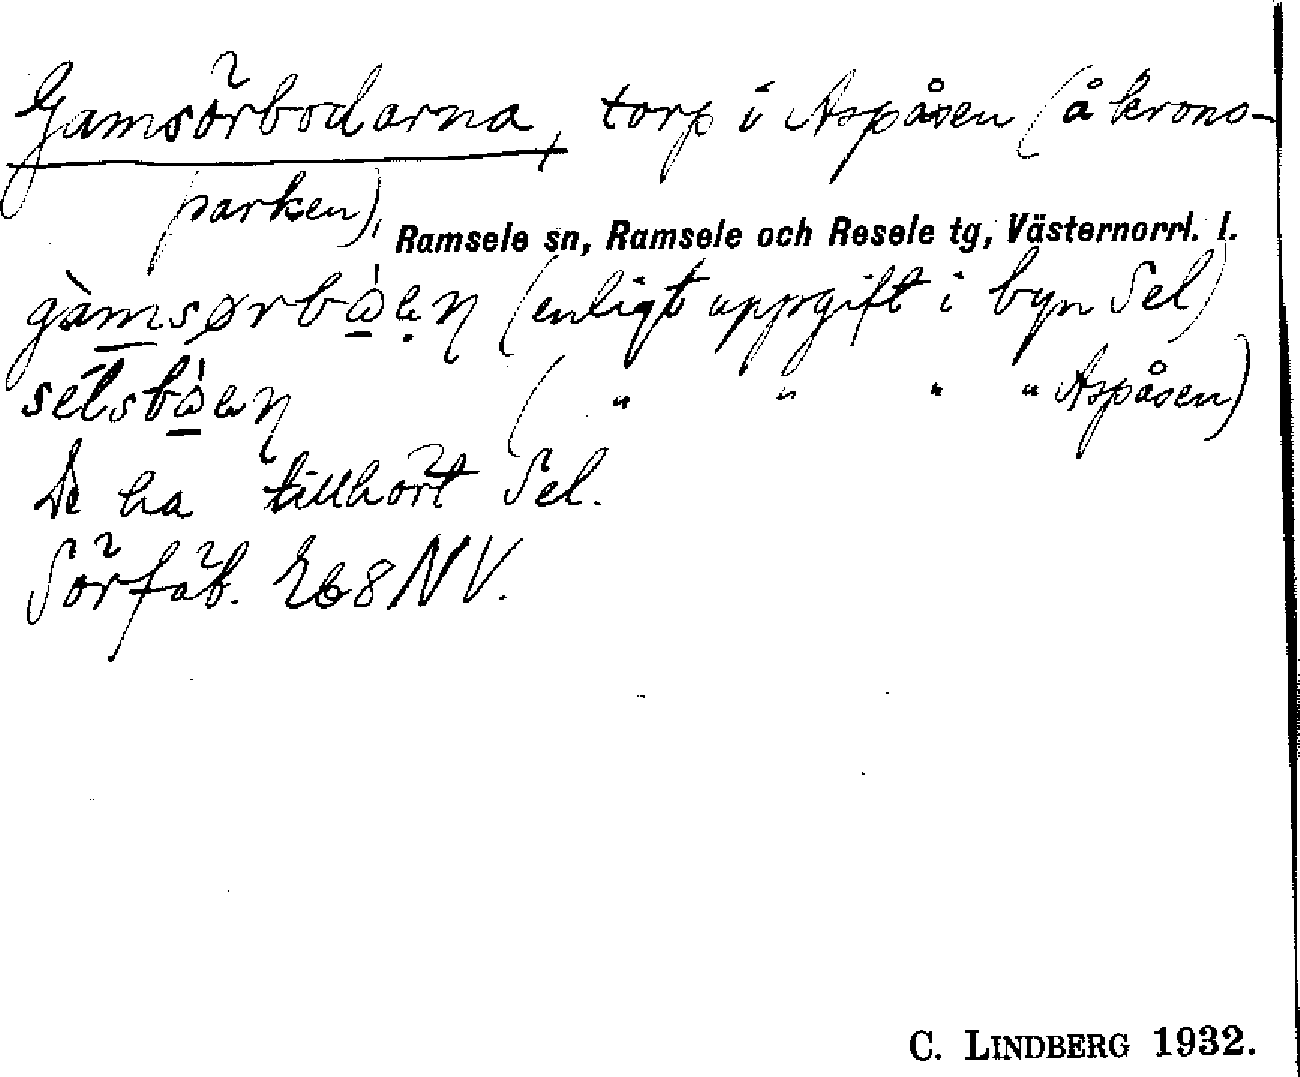 Gamsörbodarna, torp i Aspåsen (å krono-
parken), Ramsele sn, Ramsele och Resele tg, Västernorrl. l.
gàmsørbɷ̀ɐn (enligt uppgift i byn Sel)
sélsbɷ̀ɐn ( " " " " Aspåsen)
De ha tillhört Sel.
Sörfäb. 8 NV.
C. LINDBERG 1932.